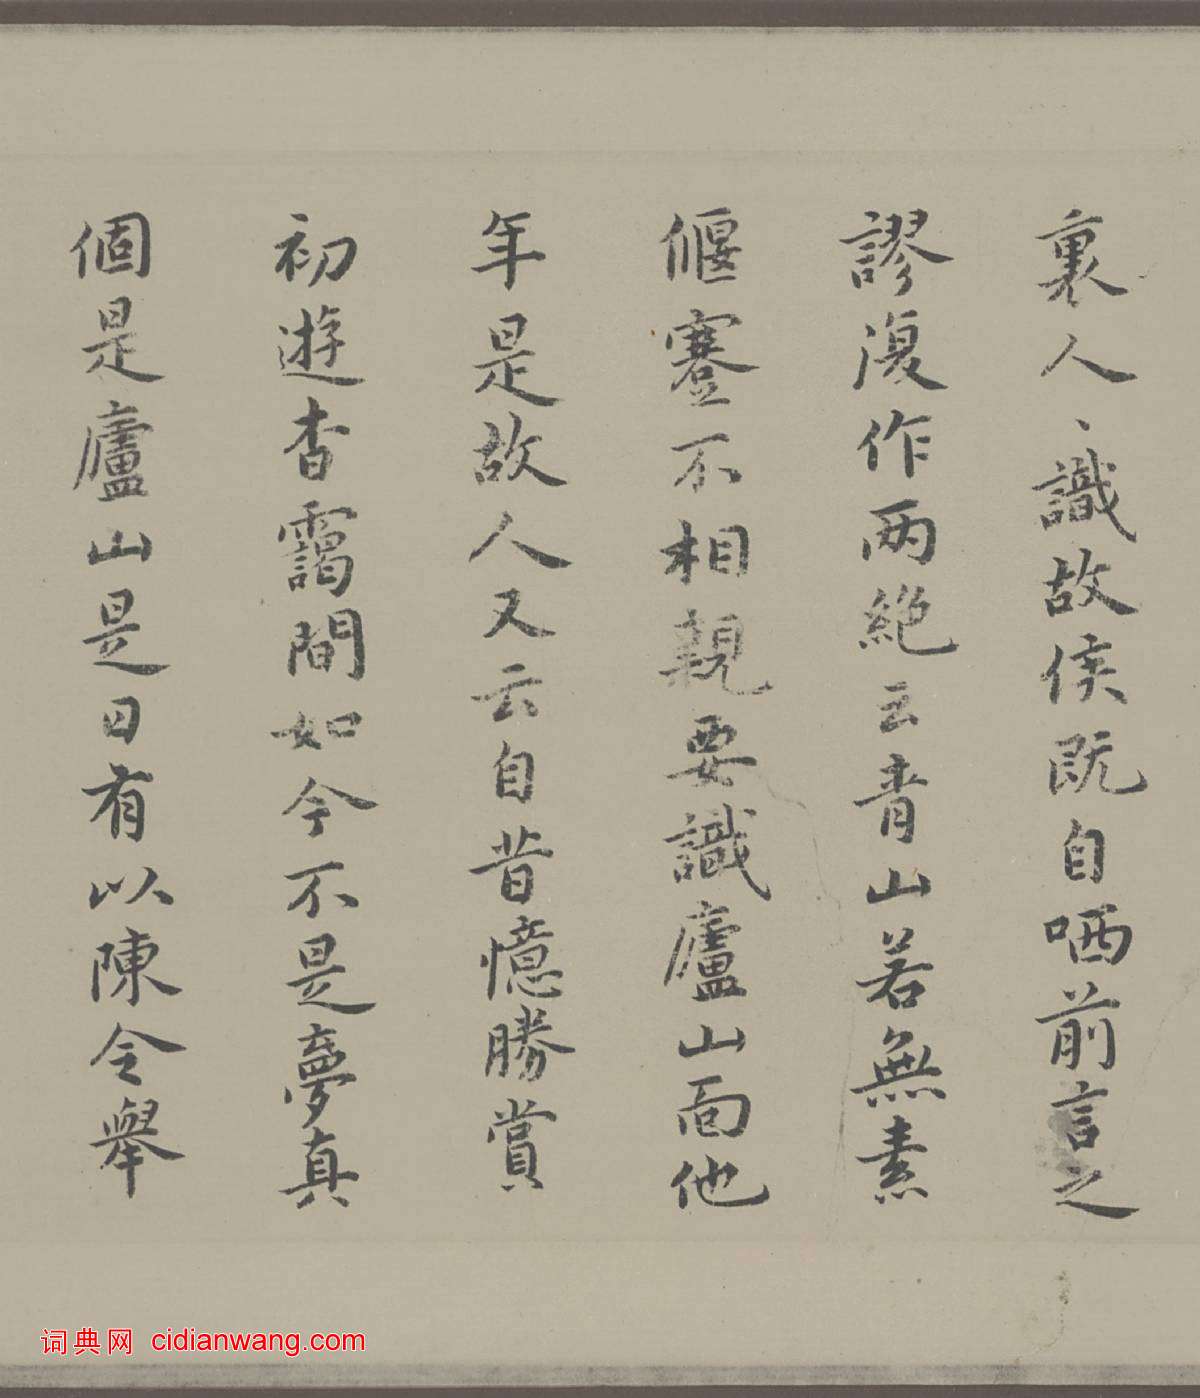 裏人、識故侯既自哂前言之
謬復作两絶云青山若無素
偃蹇不相親要識廬山面他
年是故人又云自昔憶勝賞
初遊杳靄間如今不是夢真
個是廬山是日有以陳令舉
词典网 cidianwang.com